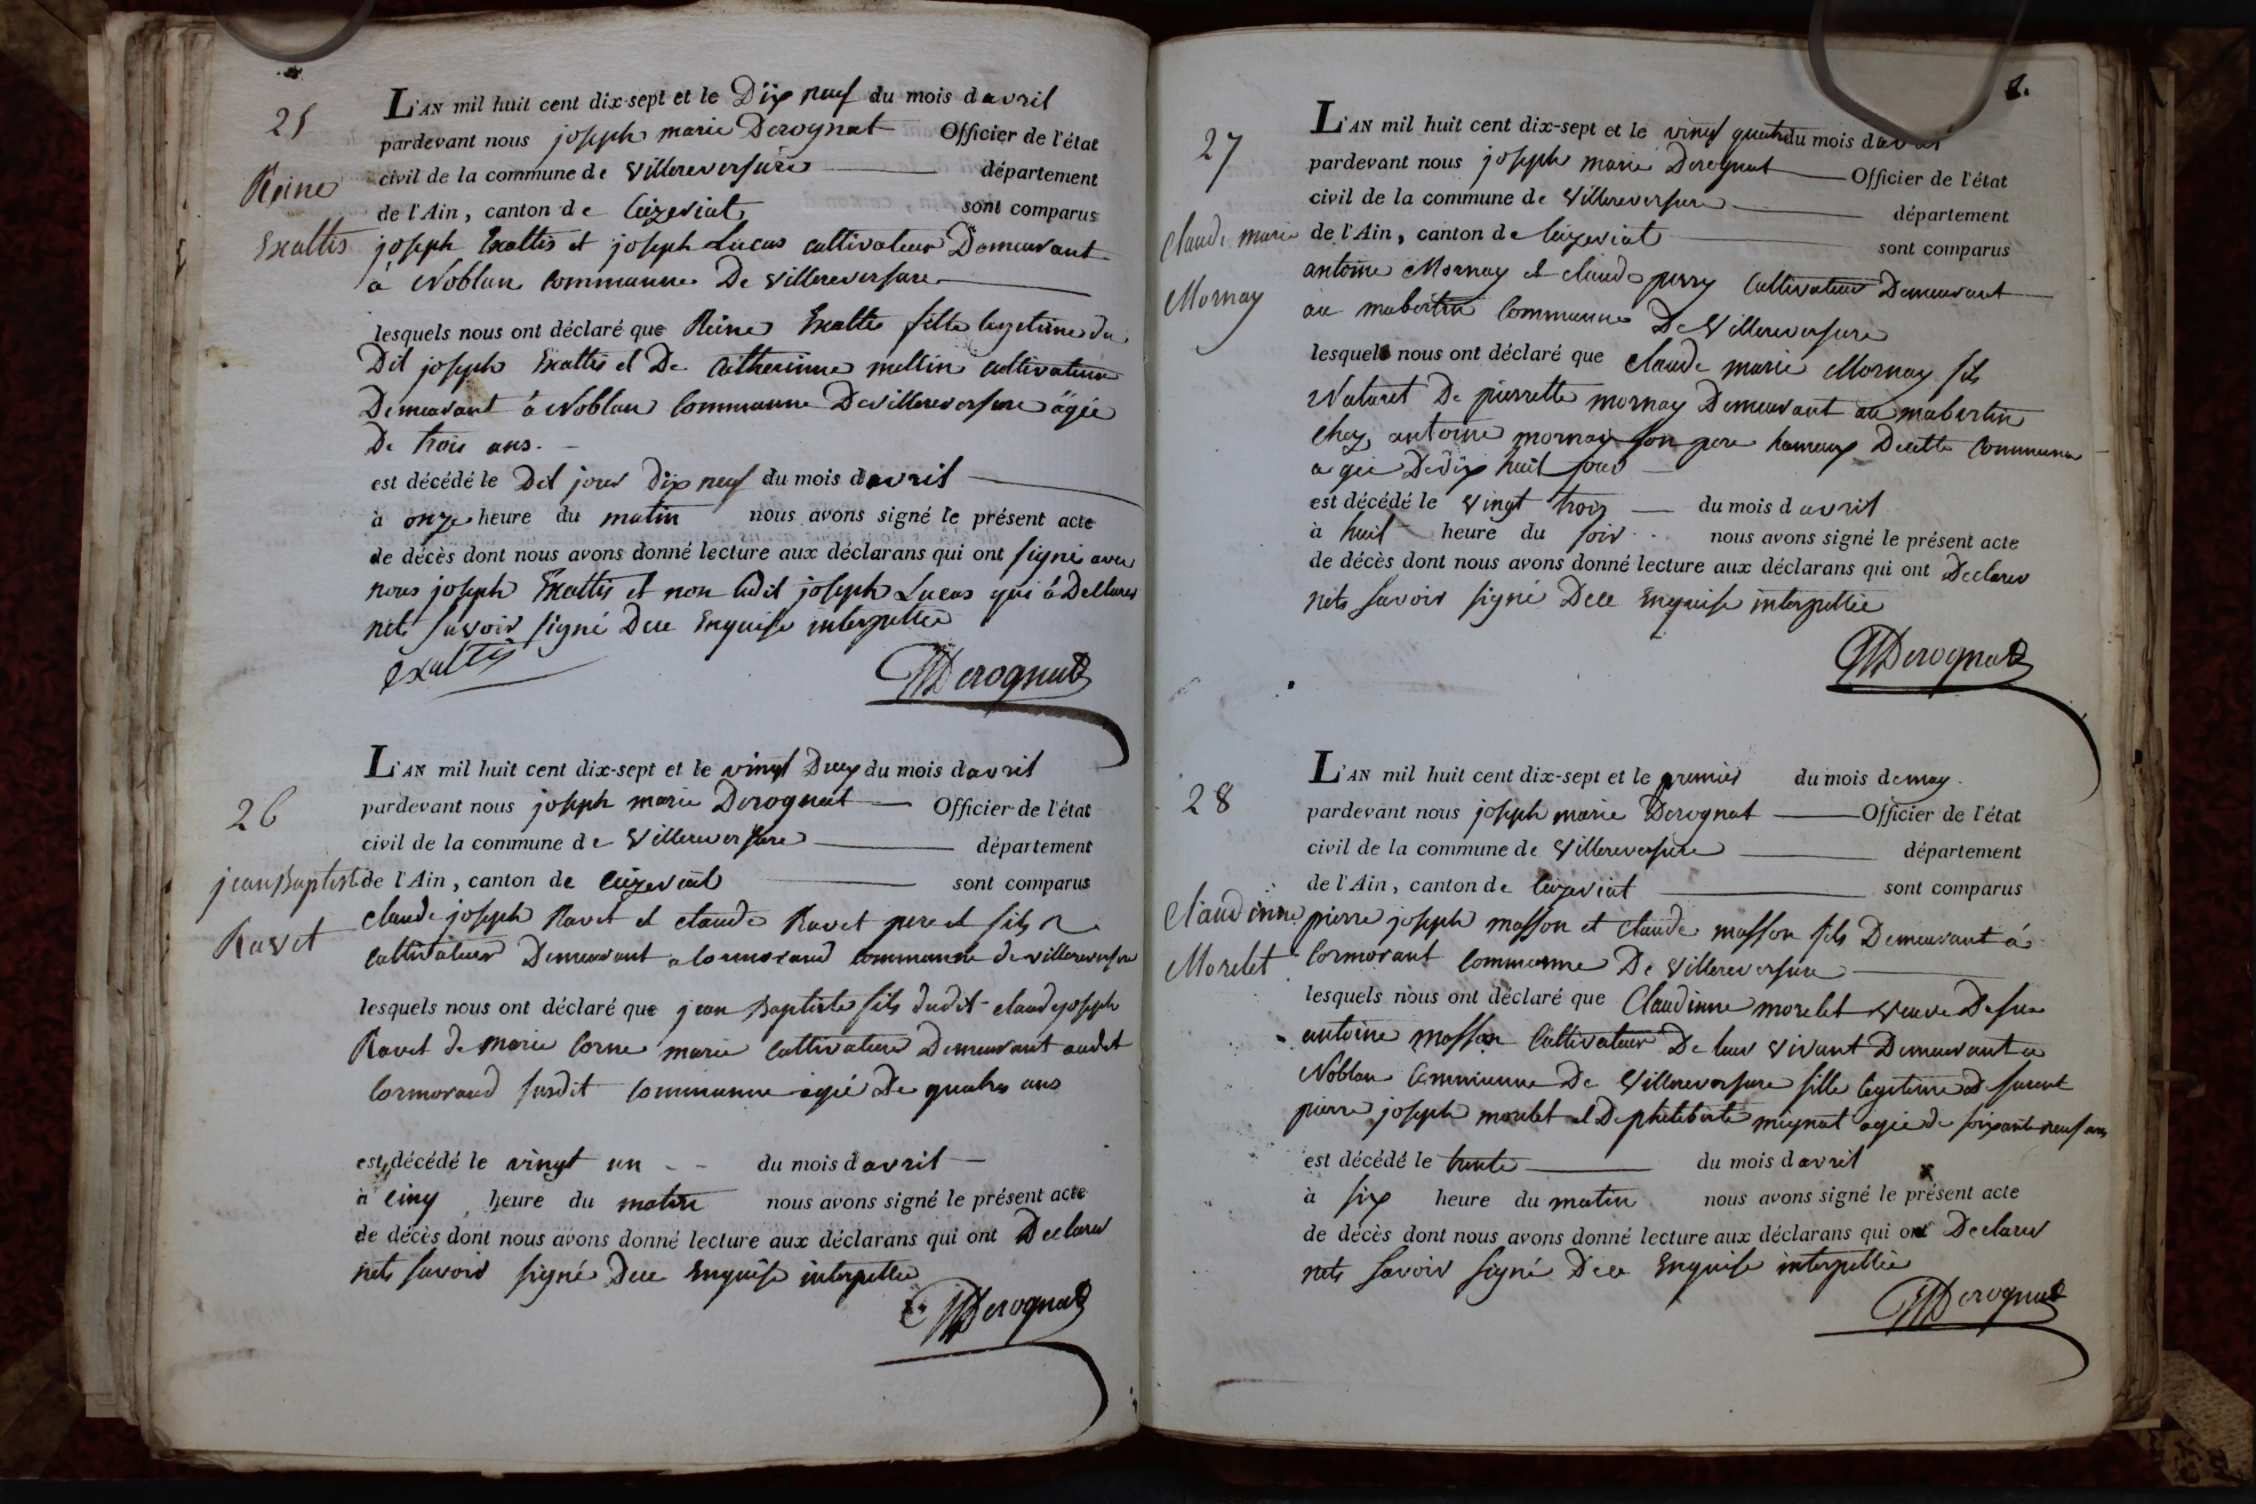 25
Reine
Exaltis
L'AN mil huit cent dix-sept et le Dix neuf du mois davril
pardevant nous joseph marie Derognat Officier de l'état
civil de la commune de villereversure département
de l'Ain, canton de Ceizeriat sont comparus
joseph Exaltis et joseph Lucas cultivateur Demeurant
à Noblan commune De villereversure
lesquels nous ont déclaré que Reine Exaltis fille legitime du
Dit joseph Exaltis et De Catherinne mellin cultivateur
Demeurant à Noblan commune De villereversure agée
De trois ans.
est décédé le Dit jour dix neuf du mois davril
à onze heure du matin nous avons signé le présent acte
de décès dont nous avons donné lecture aux déclarans qui ont signé avec
nous joseph Exaltis et non ledit joseph Lucas qui à Declarer
nets savoir signé Dece Enquise interpellée
exaltis
JMDerognat
26
jean Baptiste
Ravet
L'AN mil huit cent dix-sept et le vingt Deux du mois davril
pardevant nous joseph marie Derognat Officier de l'état
civil de la commune de villereversure département
de l'Ain, canton de Ceizeriat sont comparus
claude joseph Ravet et claude Ravet pere et fils
cultivateur Demeurant a Cormoraud commune de villereversure
lesquels nous ont déclaré que jean Baptiste fils dudit claude joseph
Ravet de marie Corne marie cultivateur Demeurant audit
Cormoraud susdit commune agée De quatre ans
est décédé le vingt un du mois davril
à cinq heure du matin nous avons signé le présent acte
de décès dont nous avons donné lecture aux déclarans qui ont Declarer
nets savoir signé Dece Enquise interpellée
JMDerognat
27
Claude marie
Mornay
L'AN mil huit cent dix-sept et le vingt quatre du mois davril
pardevant nous joseph marie Derognat Officier de l'état
civil de la commune de villereversure département
de l'Ain, canton de Ceizeriat sont comparus
antoine Mornay et claude perry Cultivateur Demeurant
au mabertin commune De villereversure
lesquels nous ont déclaré que claude marie Mornay fils
Naturel De pierrette mornay Demeurant au mabertin
chez antoine mornay son pere hameaux De cette commune
agée De dix huit jour
est décédé le vingt trois du mois davril
à huit heure du soir nous avons signé le présent acte
de décès dont nous avons donné lecture aux déclarans qui ont Declarer
nets savoir signé Dece Enquise interpellée
JMDerognat
28
Claudinne
Morelet
L'AN mil huit cent dix-sept et le premier du mois de may
pardevant nous joseph marie Derognat Officier de l'état
civil de la commune de villereversure département
de l'Ain, canton de Ceizeriat sont comparus
pierre joseph masson et claude masson fils Demeurant à
Cormorant commune De villereversure
lesquels nous ont déclaré que Claudinne morelet veuve De feu
antoine masson Cultivateur De leur vivant Demeurant a
Noblan commune De villereversure fille legitime De furent
pierre joseph morelet et De philiberte mignat agée de soixante neuf ans
est décédé le trente du mois davril
à six heure du matin nous avons signé le présent acte
de décès dont nous avons donné lecture aux déclarans qui ont Declarer
nets savoir signé Dece Enquise interpellée
JMDerognat